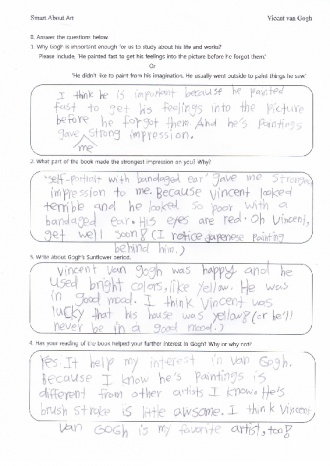 Smart About Art
Vincent van Gogh
B. Answer the questions below.
1. Why Gogh is important enough for us to study about his life and works?
Please include, 'He painted fast to get his feelings into the picture before he forgot them.'
Or
'He didn't like to paint from his imagination. He usually went outside to paint things he saw.'
I think he is important because he painted
fast to get his feelings into the picture
before he forgot them. And he's paintings
gave strong impression.
me
2. What part of the book made the strongest impression on you? Why?
"self-portrait with bandaged ear" gave me strong
impression to me. Because Vincent looked
terrible and he looked so poor with a
bandaged ear. His eyes are red. Oh Vincent,
get well soon! (I notice Japanese painting
behind him.)
3. Write about Gogh's Sunflower period.
Vincent van Gogh was happy and he
used bright colors, like yellow. He was
in good mood. I think Vincent was
lucky that his house was yellow! (or he'll
never be in a good mood.)
4. Has your reading of the book helped your further interest in Gogh? Why or why not?
Yes. It help my interest in van Gogh.
Because I know he's paintings is
different from other artists I know. He's
brush stroke is little awsome. I think Vincent
van GoGh is my favorite artist, too!